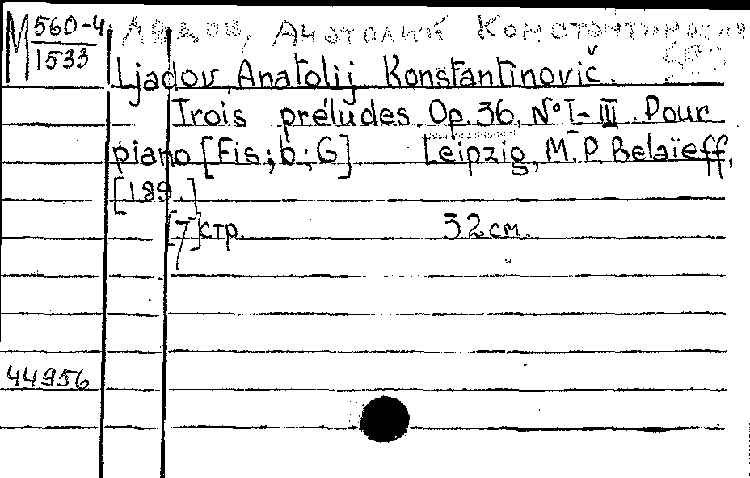 М 560-4
1533
Лядов, Анатолий Константинович
Ljadov, Anatolij Konstantinovič.
Trois préludes. Op. 36, N° I-III. Pour
piano [Fis; b; G] Leipzig, M. P. Belaïeff,
[189.]
[7] стр. 32 см.
44956